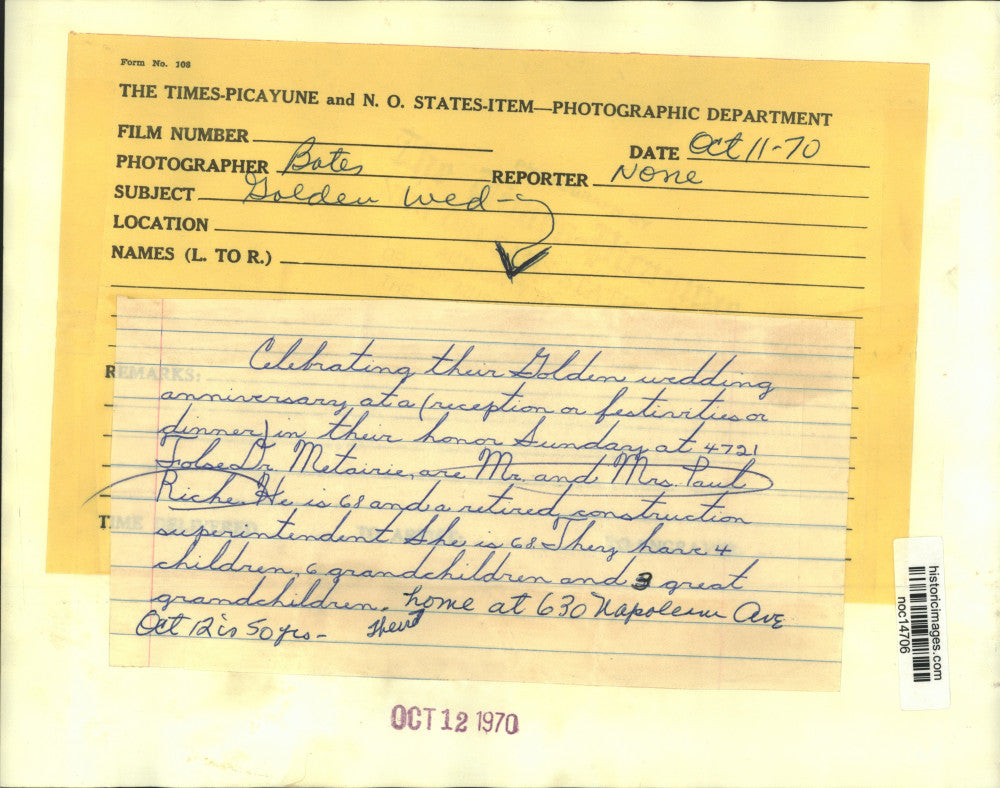 Form No. 108
THE TIMES-PICAYUNE and N. O. STATES-ITEM—PHOTOGRAPHIC DEPARTMENT
FILM NUMBER
DATE Oct 11-70
PHOTOGRAPHER Bates
REPORTER None
SUBJECT Golden Wed-
LOCATION
NAMES (L. TO R.)
REMARKS:
Celebrating their Golden wedding
anniversary at a (reception or festivities or
dinner) in their honor Sunday at 4721
Folse Dr. Metairie, are Mr. and Mrs. Paul
Riche. He is 68 and a retired construction
superintendent She is 68. They have 4
children, 6 grandchildren and 3 great
grandchildren. home at 630 Napoleon Ave
Their
Oct 12 is 50 yrs-
TIME DELIVERED
OCT 12 1970
historicimages.com
noc14706